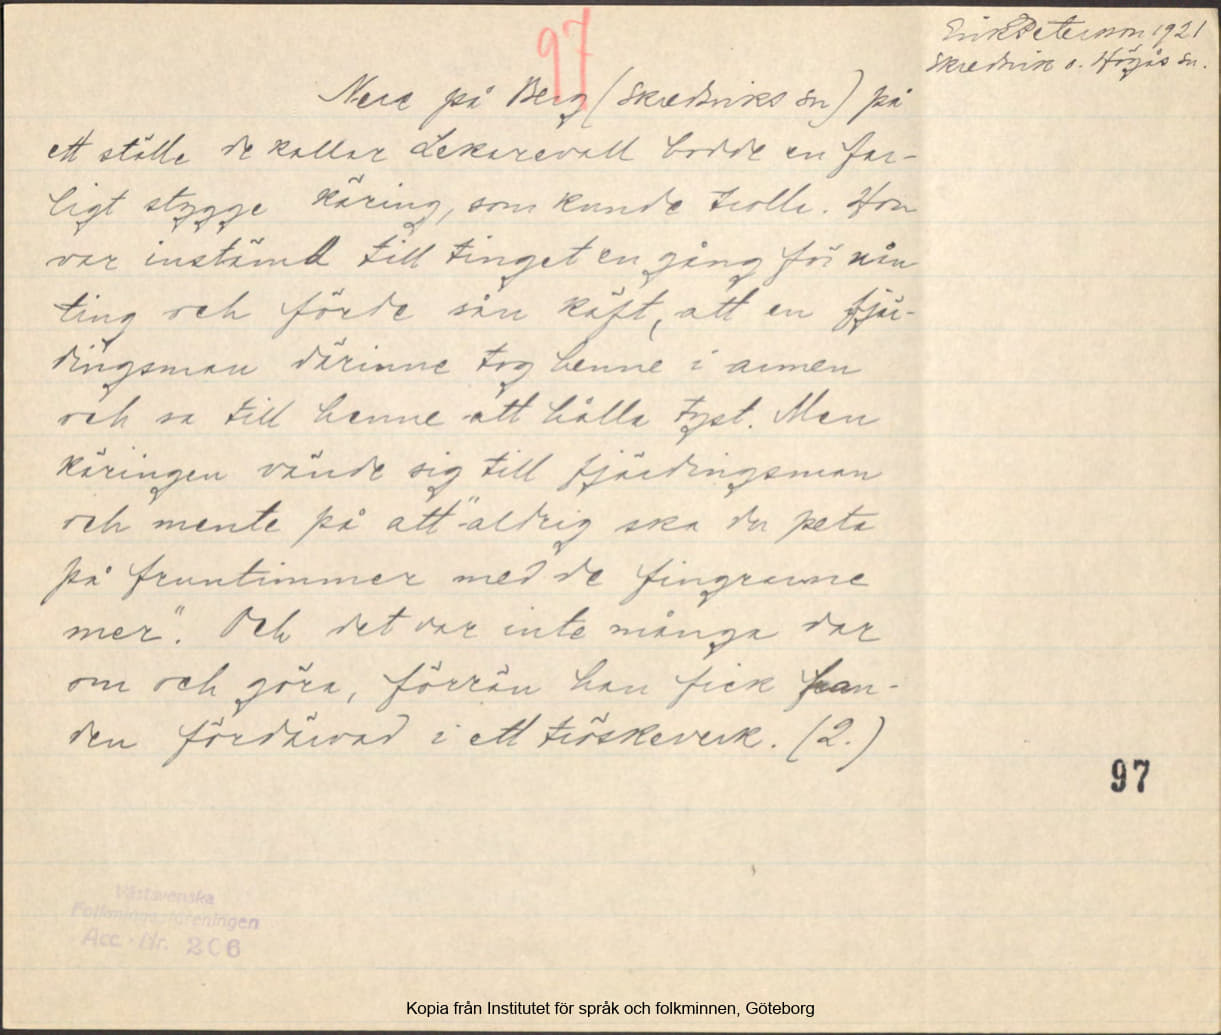 97
Erik Peterson 1921
Skredsvik o. Högås sn.
Nere på Berg (Skredsviks sn) på
ett ställe de kallar Lekarevall bodde en far-
ligt stygge käring, som kunde trolle. Hon
var instämd till tinget en gång för nån
ting och förde sån käft, att en fjär-
dingsman därinne tog henne i armen
och sa till henne att hålla tyst. Men
käringen vände sig till fjärdingsman
och mente på att "aldrig ska du peta
på fruntimmer med de fingrarne
mer". Och det var inte många dar
om och göra, förrän han fick han-
den fördärvad i ett tröskeverk. (2.)
97
Västsvenska
Folkminnesföreningen
Acc.-Nr. 206
Kopia från Institutet för språk och folkminnen, Göteborg